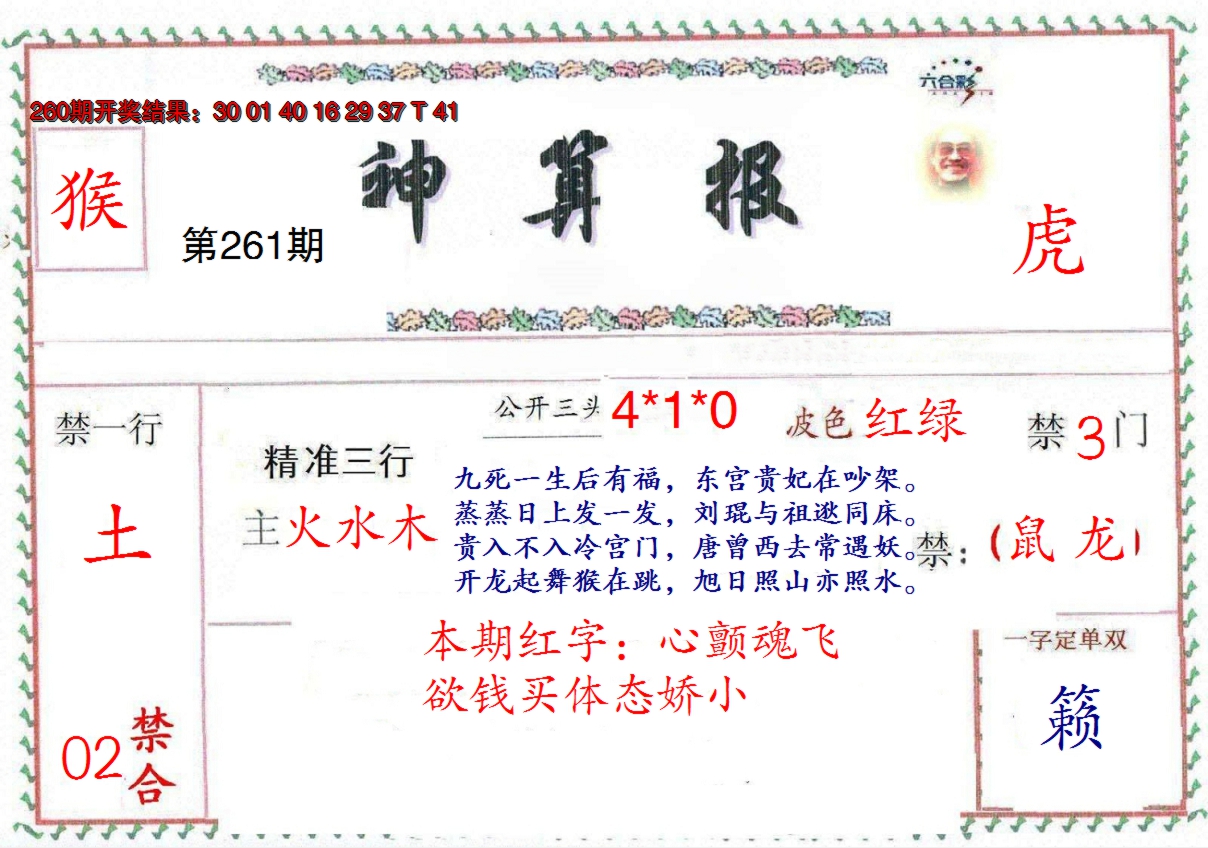 六合彩
260期开奖结果：30 01 40 16 29 37 T 41
神算报
猴
第261期
虎
公开三头 4*1*0
波色 红绿
禁一行
土
02 禁合
精准三行
主 火水木
九死一生后有福，东宫贵妃在吵架。
蒸蒸日上发一发，刘琨与祖逖同床。
贵入不入冷宫门，唐曾西去常遇妖。
开龙起舞猴在跳，旭日照山亦照水。
禁 3 门
禁：（鼠 龙）
本期红字：心颤魂飞
欲钱买体态娇小
一字定单双
籁